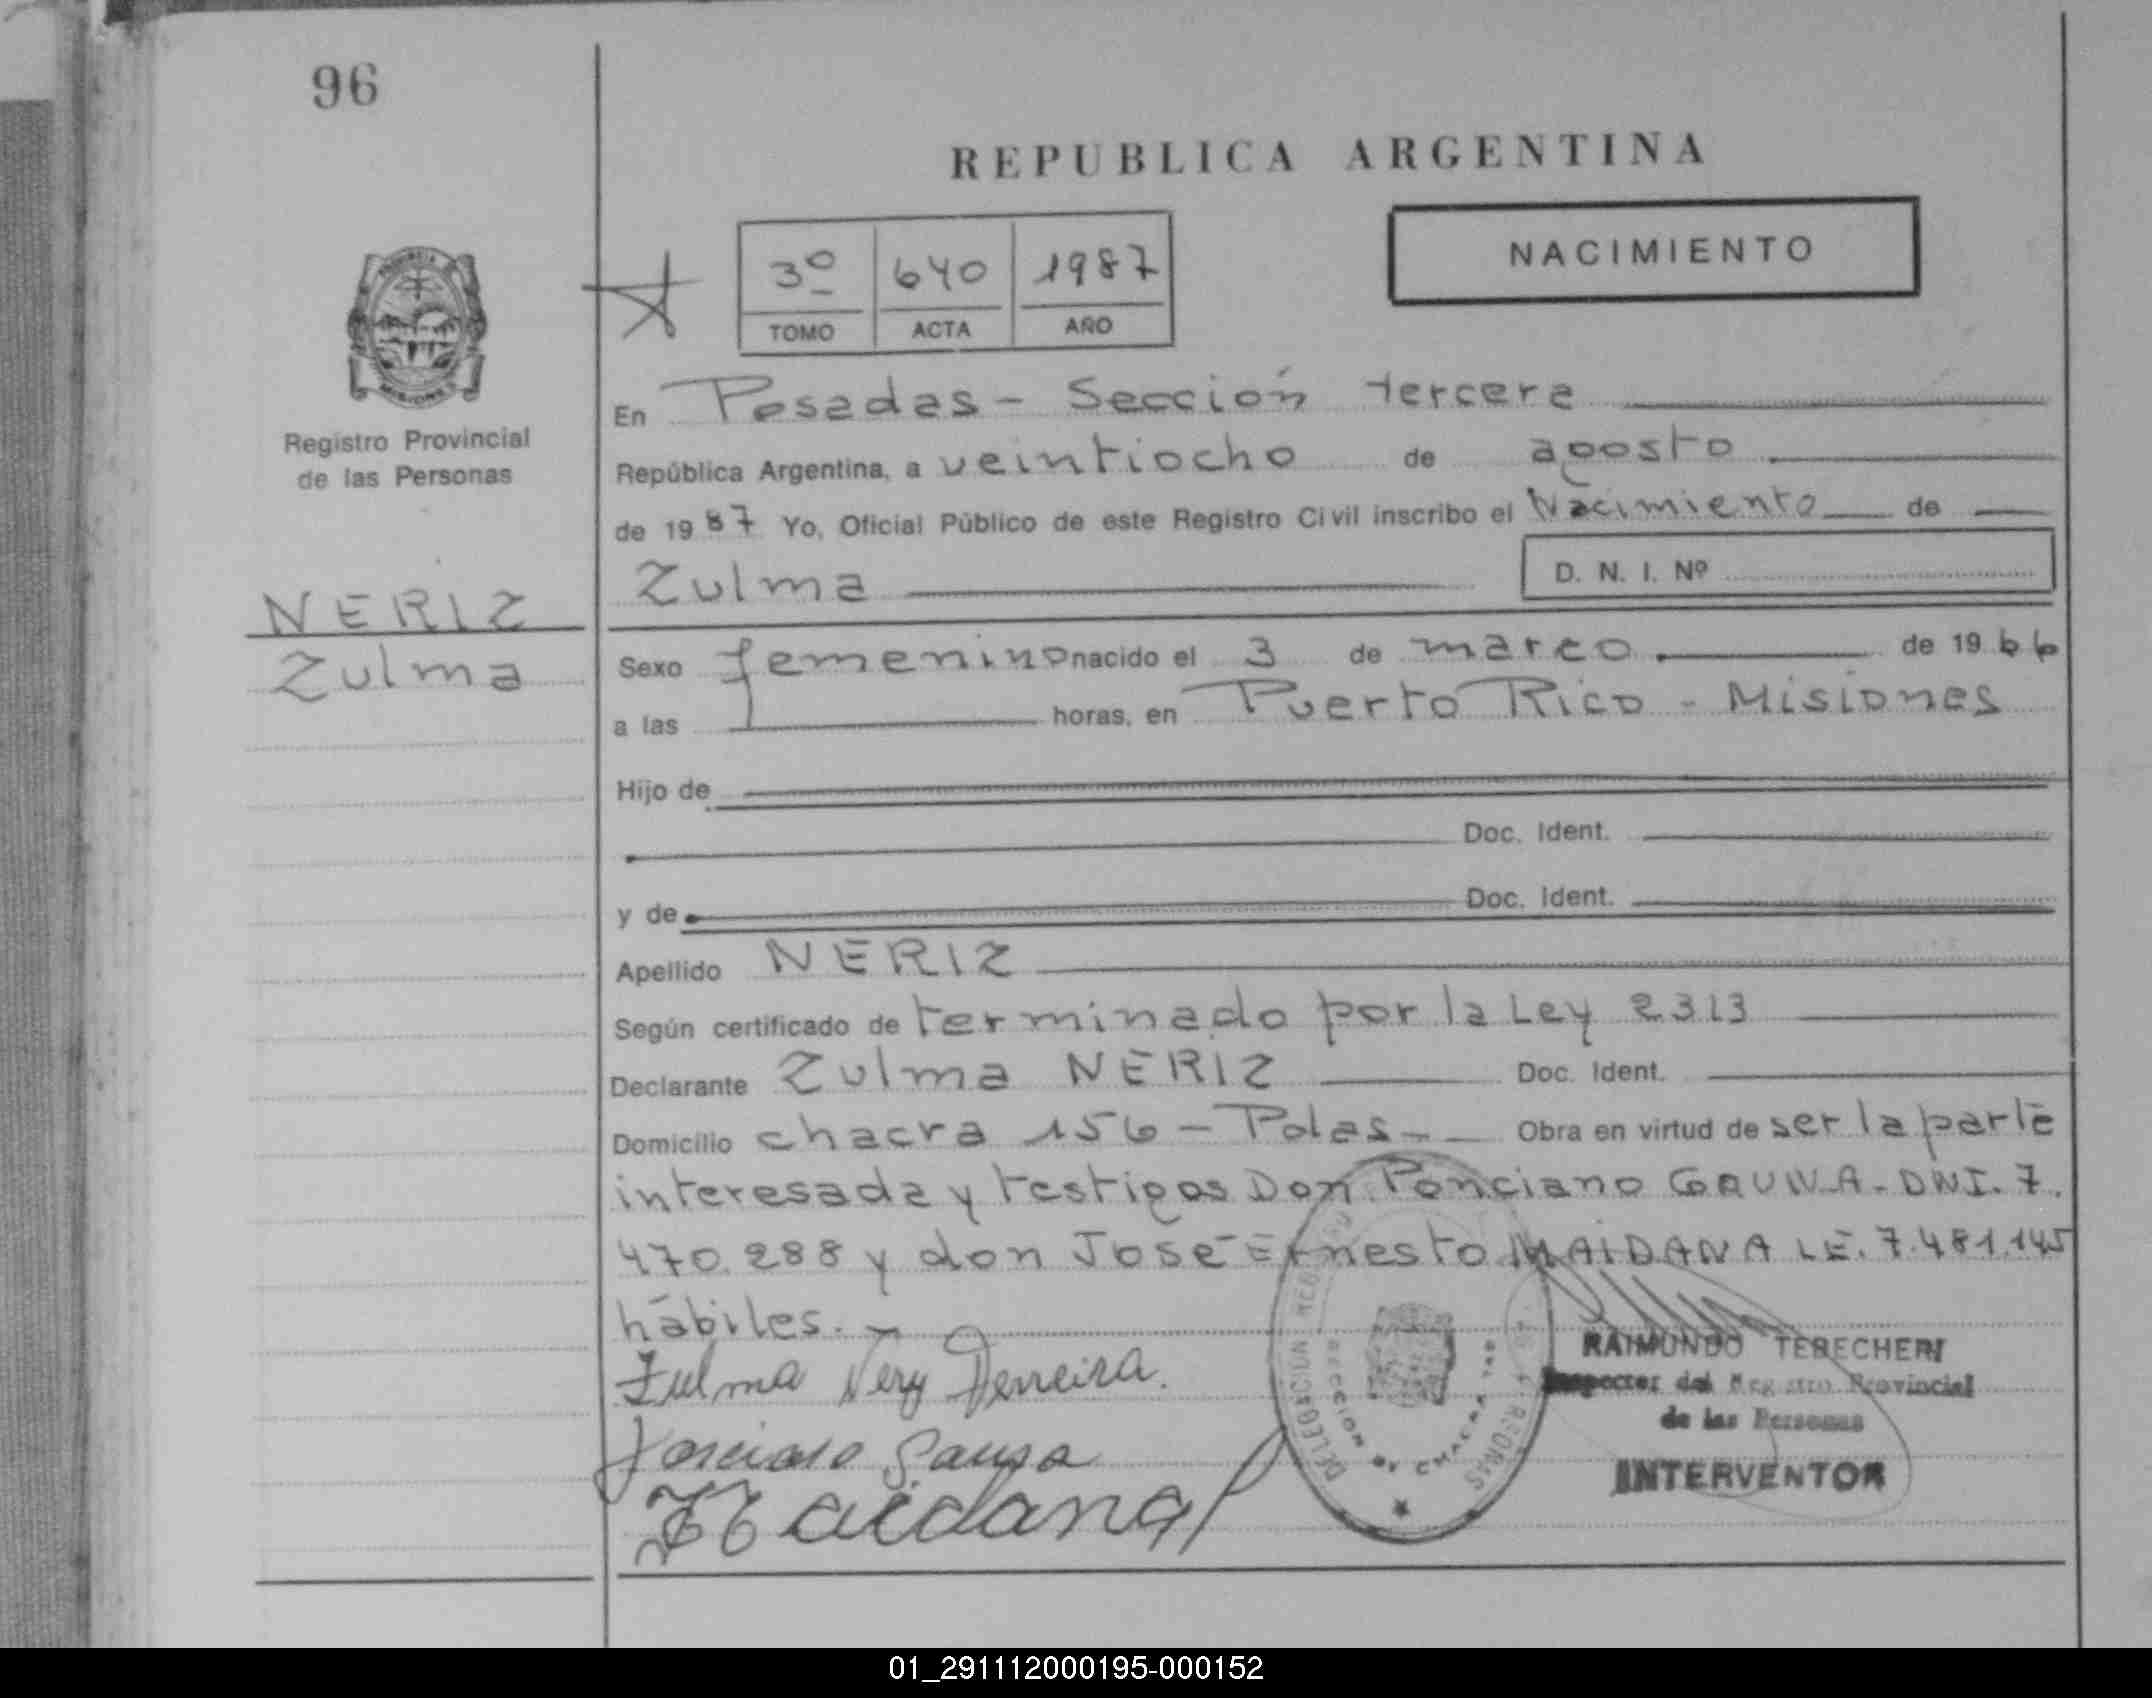 96
REPUBLICA ARGENTINA
NACIMIENTO
3º 640 1987
TOMO ACTA AÑO
PROVINCIA
MISIONES
Registro Provincial
de las Personas
NERIZ
Zulma
En Posadas - Sección tercera
República Argentina, a veintiocho de agosto
de 1987 Yo, Oficial Público de este Registro Civil inscribo el Nacimiento de
Zulma D. N. I. Nº
Sexo femenino nacido el 3 de marzo de 1966
a las horas, en Puerto Rico - Misiones
Hijo de
Doc. Ident.
y de Doc. Ident.
Apellido NERIZ
Según certificado de terminado por la Ley 2313
Declarante Zulma NERIZ Doc. Ident.
Domicilio chacra 156 - Pdas - Obra en virtud de ser la parte
interesada y testigos Don Ponciano DNI. 7.
470.288 y don José Ernesto MAIDANA LE. 7.481.145
hábiles. -
Zulma Nery Ferreira.
Maidana
DELEGACION SECCION DE CHACRA PERSONAS
RAIMUNDO TERECHERI
Inspector del Registro Provincial
de las Personas
INTERVENTOR
01_291112000195-000152